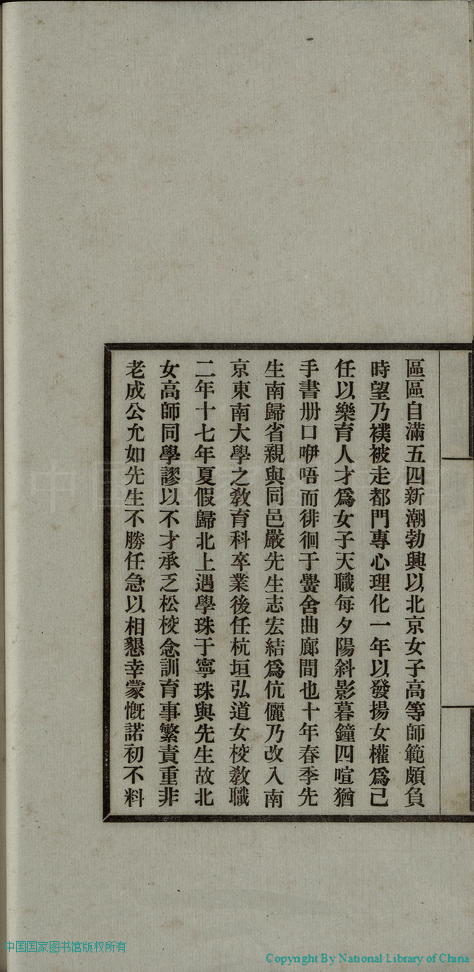 區區自滿五四新潮勃興以北京女子高等師範頗負
時望乃襆被走都門專心理化一年以發揚女權爲己
任以樂育人才爲女子天職每夕陽斜影暮鐘四喧猶
手書册口咿唔而徘徊于黌舍曲廊間也十年春季先
生南歸省親與同邑嚴先生志宏結爲伉儷乃改入南
京東南大學之敎育科卒業後任杭垣弘道女校敎職
二年十七年夏假歸北上遇學珠于寧珠與先生故北
女高師同學謬以不才承乏松校念訓育事繁責重非
老成公允如先生不勝任急以相懇幸蒙慨諾初不料
中国国家图书馆版权所有
Copyright By National Library of China